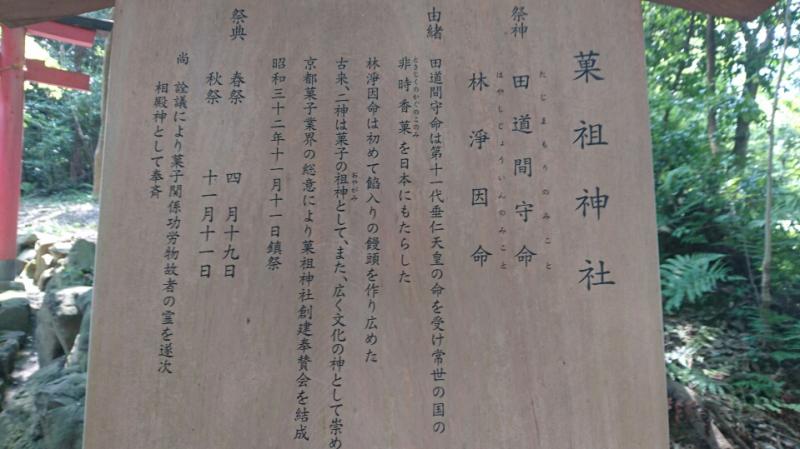 菓祖神社
祭神 田道間守命
たじまもりのみこと
林淨因命
はやしじょういんのみこと
由緒 田道間守命は第十一代垂仁天皇の命を受け常世の国の
非時香菓を日本にもたらした
ときじくのかぐのこのみ
林淨因命は初めて餡入りの饅頭を作り広めた
古来、二神は菓子の祖神として、また、広く文化の神として崇め
おやがみ
京都菓子業界の総意により菓祖神社創建奉賛会を結成
昭和三十二年十一月十一日鎮祭
祭典 春祭 四月十九日
秋祭 十一月十一日
尚 詮議により菓子関係功労物故者の霊を逐次
相殿神として奉斉